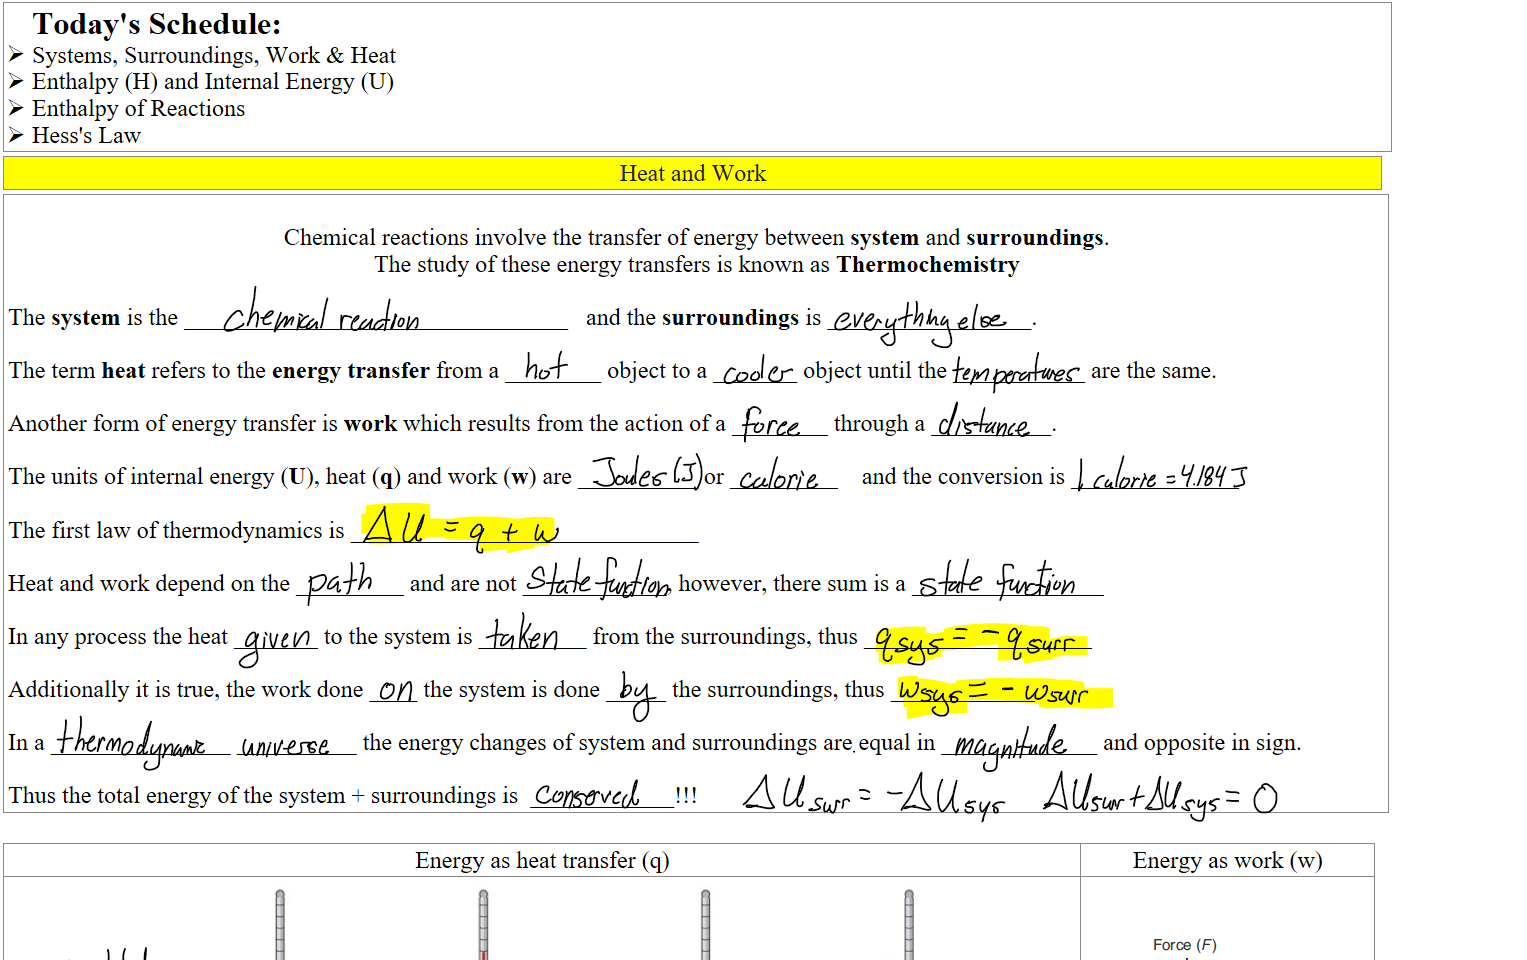 Today's Schedule:
➢ Systems, Surroundings, Work & Heat
➢ Enthalpy (H) and Internal Energy (U)
➢ Enthalpy of Reactions
➢ Hess's Law
Heat and Work
Chemical reactions involve the transfer of energy between system and surroundings.
The study of these energy transfers is known as Thermochemistry
The system is the chemical reaction and the surroundings is everything else.
The term heat refers to the energy transfer from a hot object to a cooler object until the temperatures are the same.
Another form of energy transfer is work which results from the action of a force through a distance.
The units of internal energy (U), heat (q) and work (w) are Joules (J) or calorie and the conversion is 1 calorie = 4.184 J
The first law of thermodynamics is ΔU = q + w
Heat and work depend on the path and are not State function, however, there sum is a state function
In any process the heat given to the system is taken from the surroundings, thus qsys = - qsurr
Additionally it is true, the work done on the system is done by the surroundings, thus wsys = - wsurr
In a thermodynamic universe the energy changes of system and surroundings are equal in magnitude and opposite in sign.
Thus the total energy of the system + surroundings is conserved !!! ΔUsurr = -ΔUsys ΔUsurr + ΔUsys = 0
Energy as heat transfer (q) Energy as work (w)
Force (F)